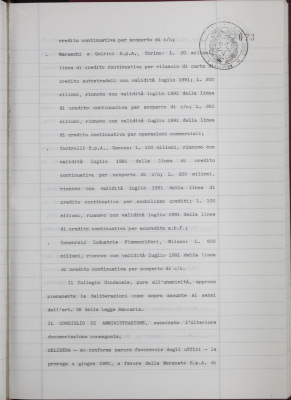 credito continuativa per scoperto di c/c;
. Maraschi e Quirici S.p.A., Torino: L. 20 milioni,
linea di credito continuativa per rilascio di carte di
credito autostradali con validità luglio 1991; L. 200
milioni, rinnovo con validità luglio 1991 della linea
di credito continuativa per scoperto di c/c; L. 200
milioni, rinnovo con validità luglio 1991 della linea
di credito continuativa per operazioni commerciali;
. S.p.A., Genova: L. 100 milioni, rinnovo con
validità luglio 1991 della linea di credito
continuativa per scoperto di c/c; L. 250 milioni,
rinnovo con validità luglio 1991 della linea di
credito continuativa per smobilizzo crediti; L. 100
milioni, rinnovo con validità luglio 1991 della linea
di credito continuativa per accredito s.b.f.;
. Consorzio Industrie Fiammiferi, Milano: L. 600
milioni, rinnovo con validità luglio 1991 della linea
di credito continuativa per scoperto di c/c.
Il Collegio Sindacale, pure all'unanimità, approva
pienamente le deliberazioni come sopra assunte ai sensi
dell'art. 38 della Legge Bancaria.
IL CONSIGLIO DI AMMINISTRAZIONE, esaminata l'ulteriore
documentazione consegnata;
DELIBERA - su conforme parere favorevole degli uffici - la
proroga a giugno 1991, a favore della S.p.A. di